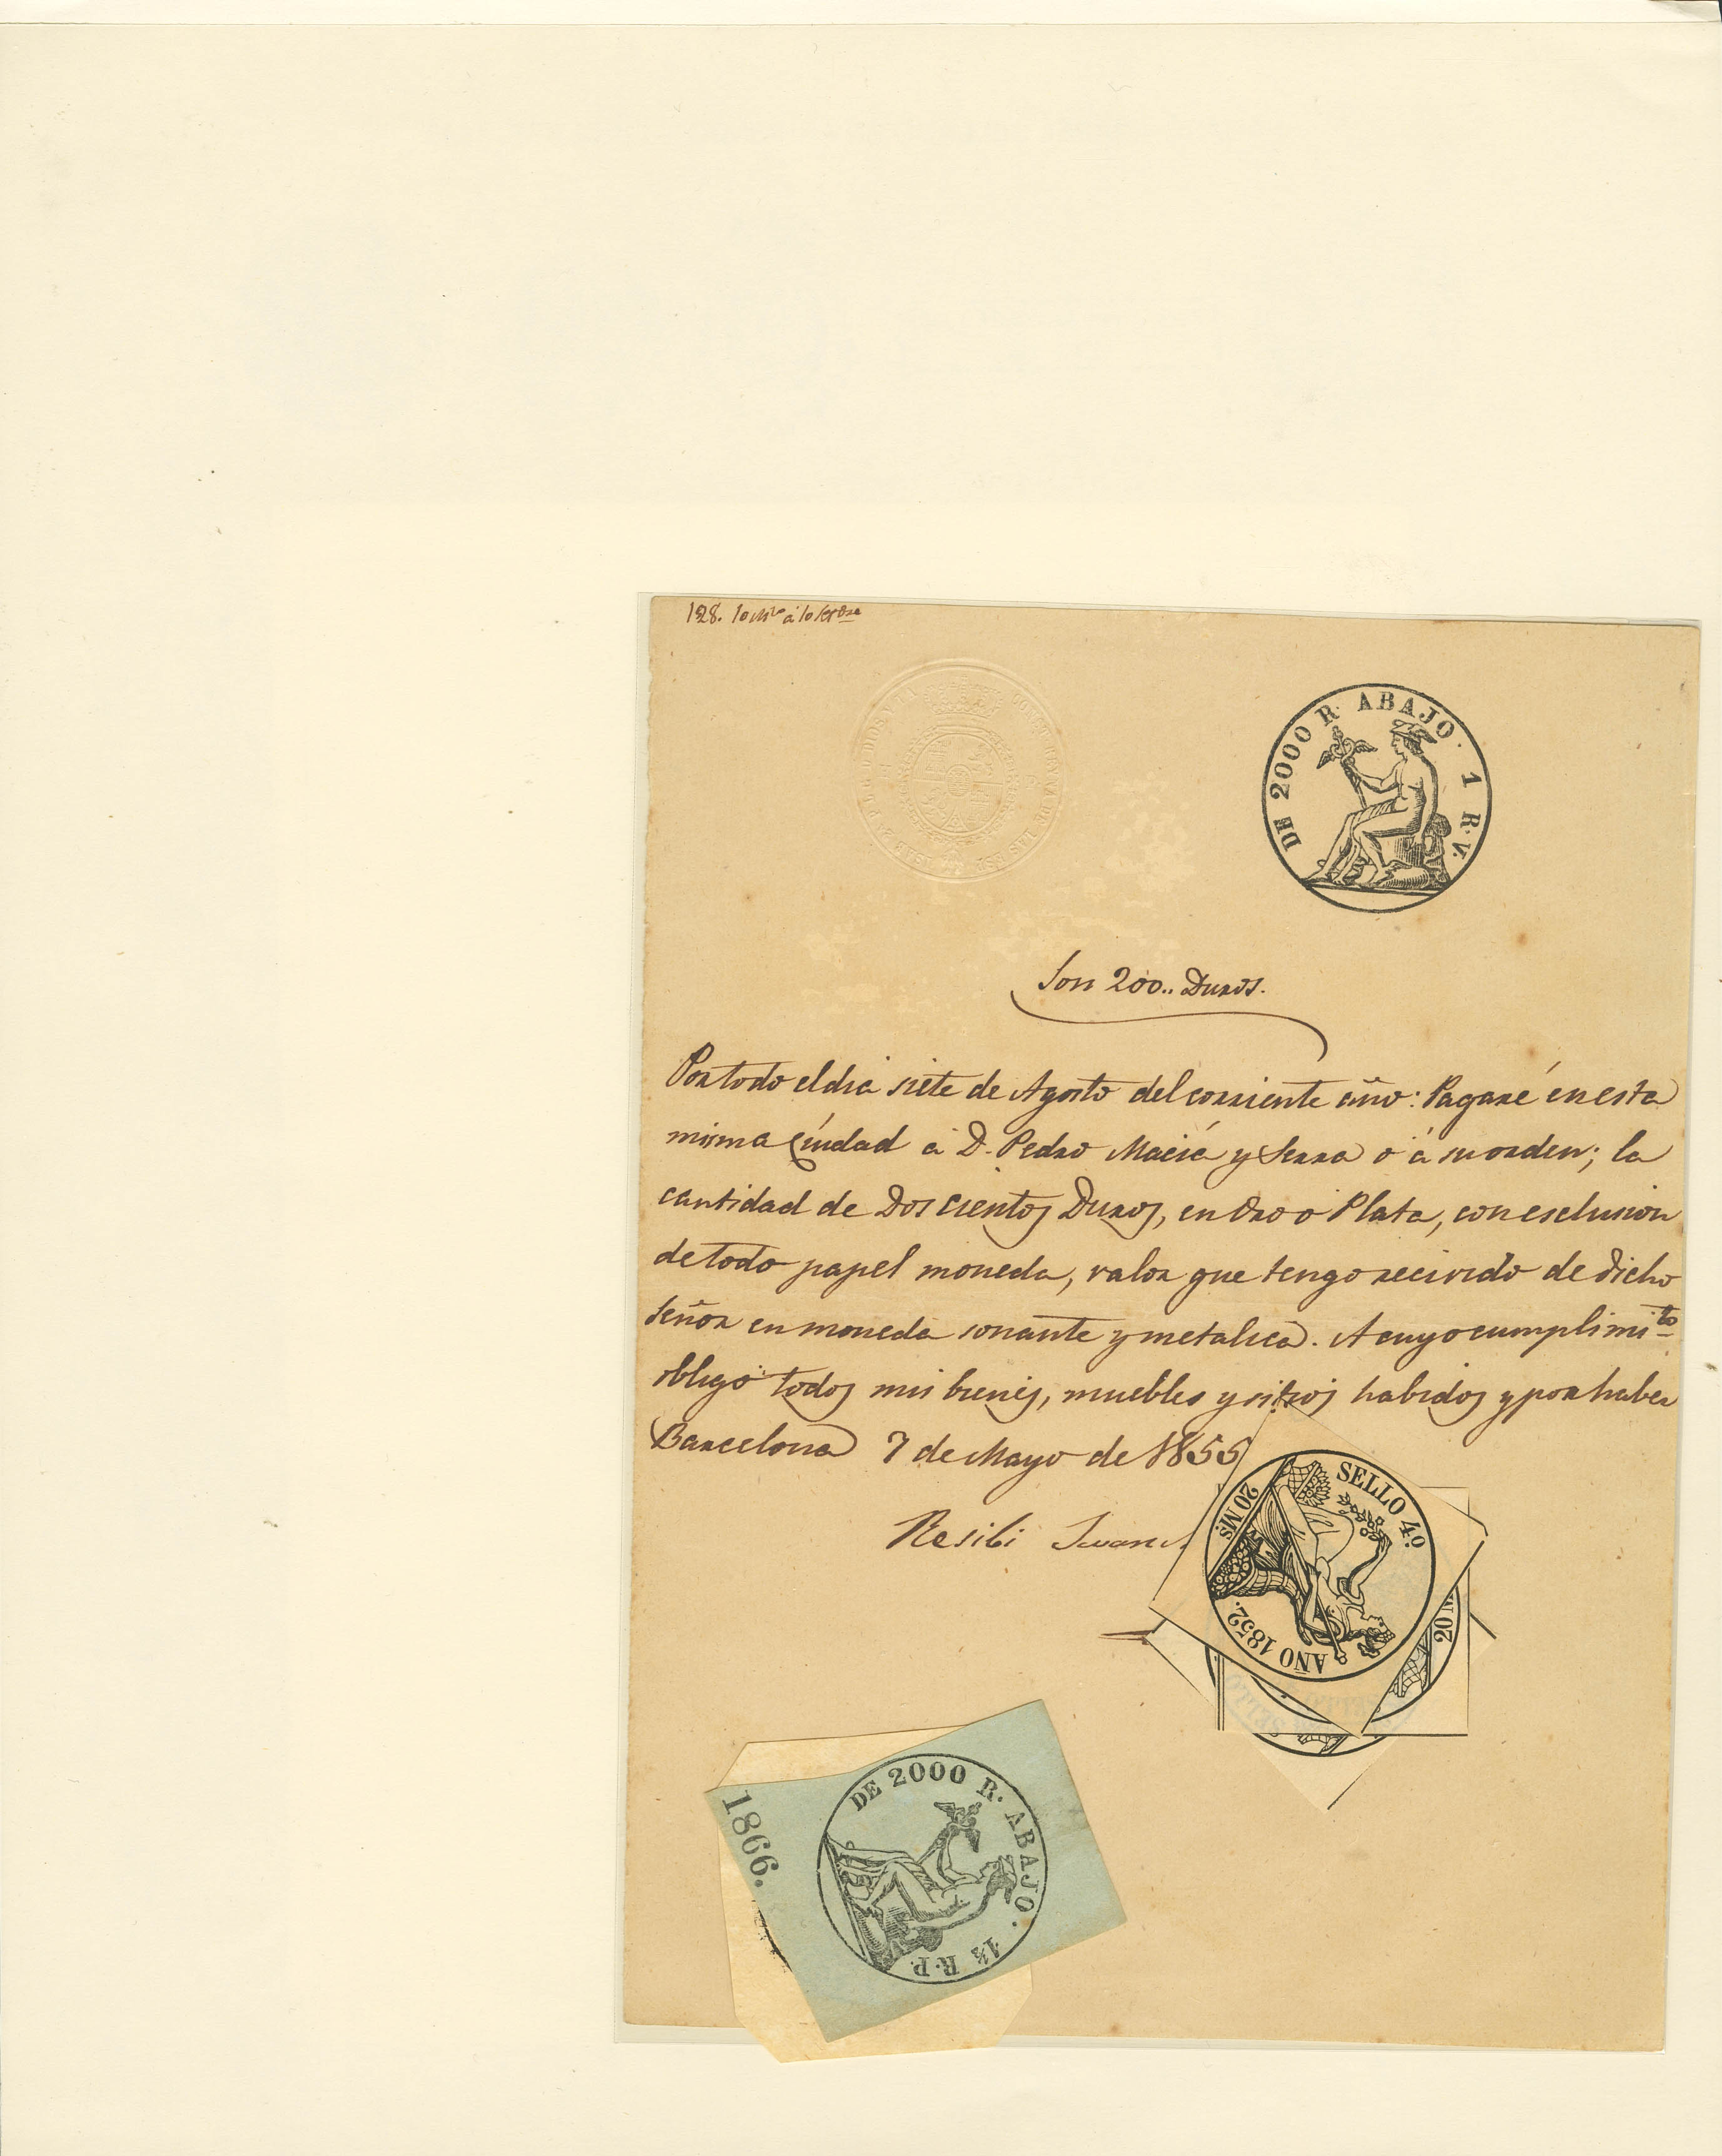 128.
DE 2000 R. ABAJO. 1 R.V.
Son 200.. Duros.
Por todo el dia siete de Agosto del corriente año: Pagaré en esta
misma Ciudad á D. Pedro Maciá y Serra o á su orden; la
cantidad de Doscientos Duros, en Oro o Plata, con esclusion
de todo papel moneda, valor que tengo recivido de dicho
Señor en moneda sonante y metalica. A cuyo cumplimito
obligo todos mis bienes, muebles y sitios habidos y por haber
Barcelona 7 de Mayo de 1855
Resibi Juan
SELLO 4º
20 Ms.
AÑO 1852.
20 M
DE 2000 R. ABAJO. 1½ R.P.
1866.